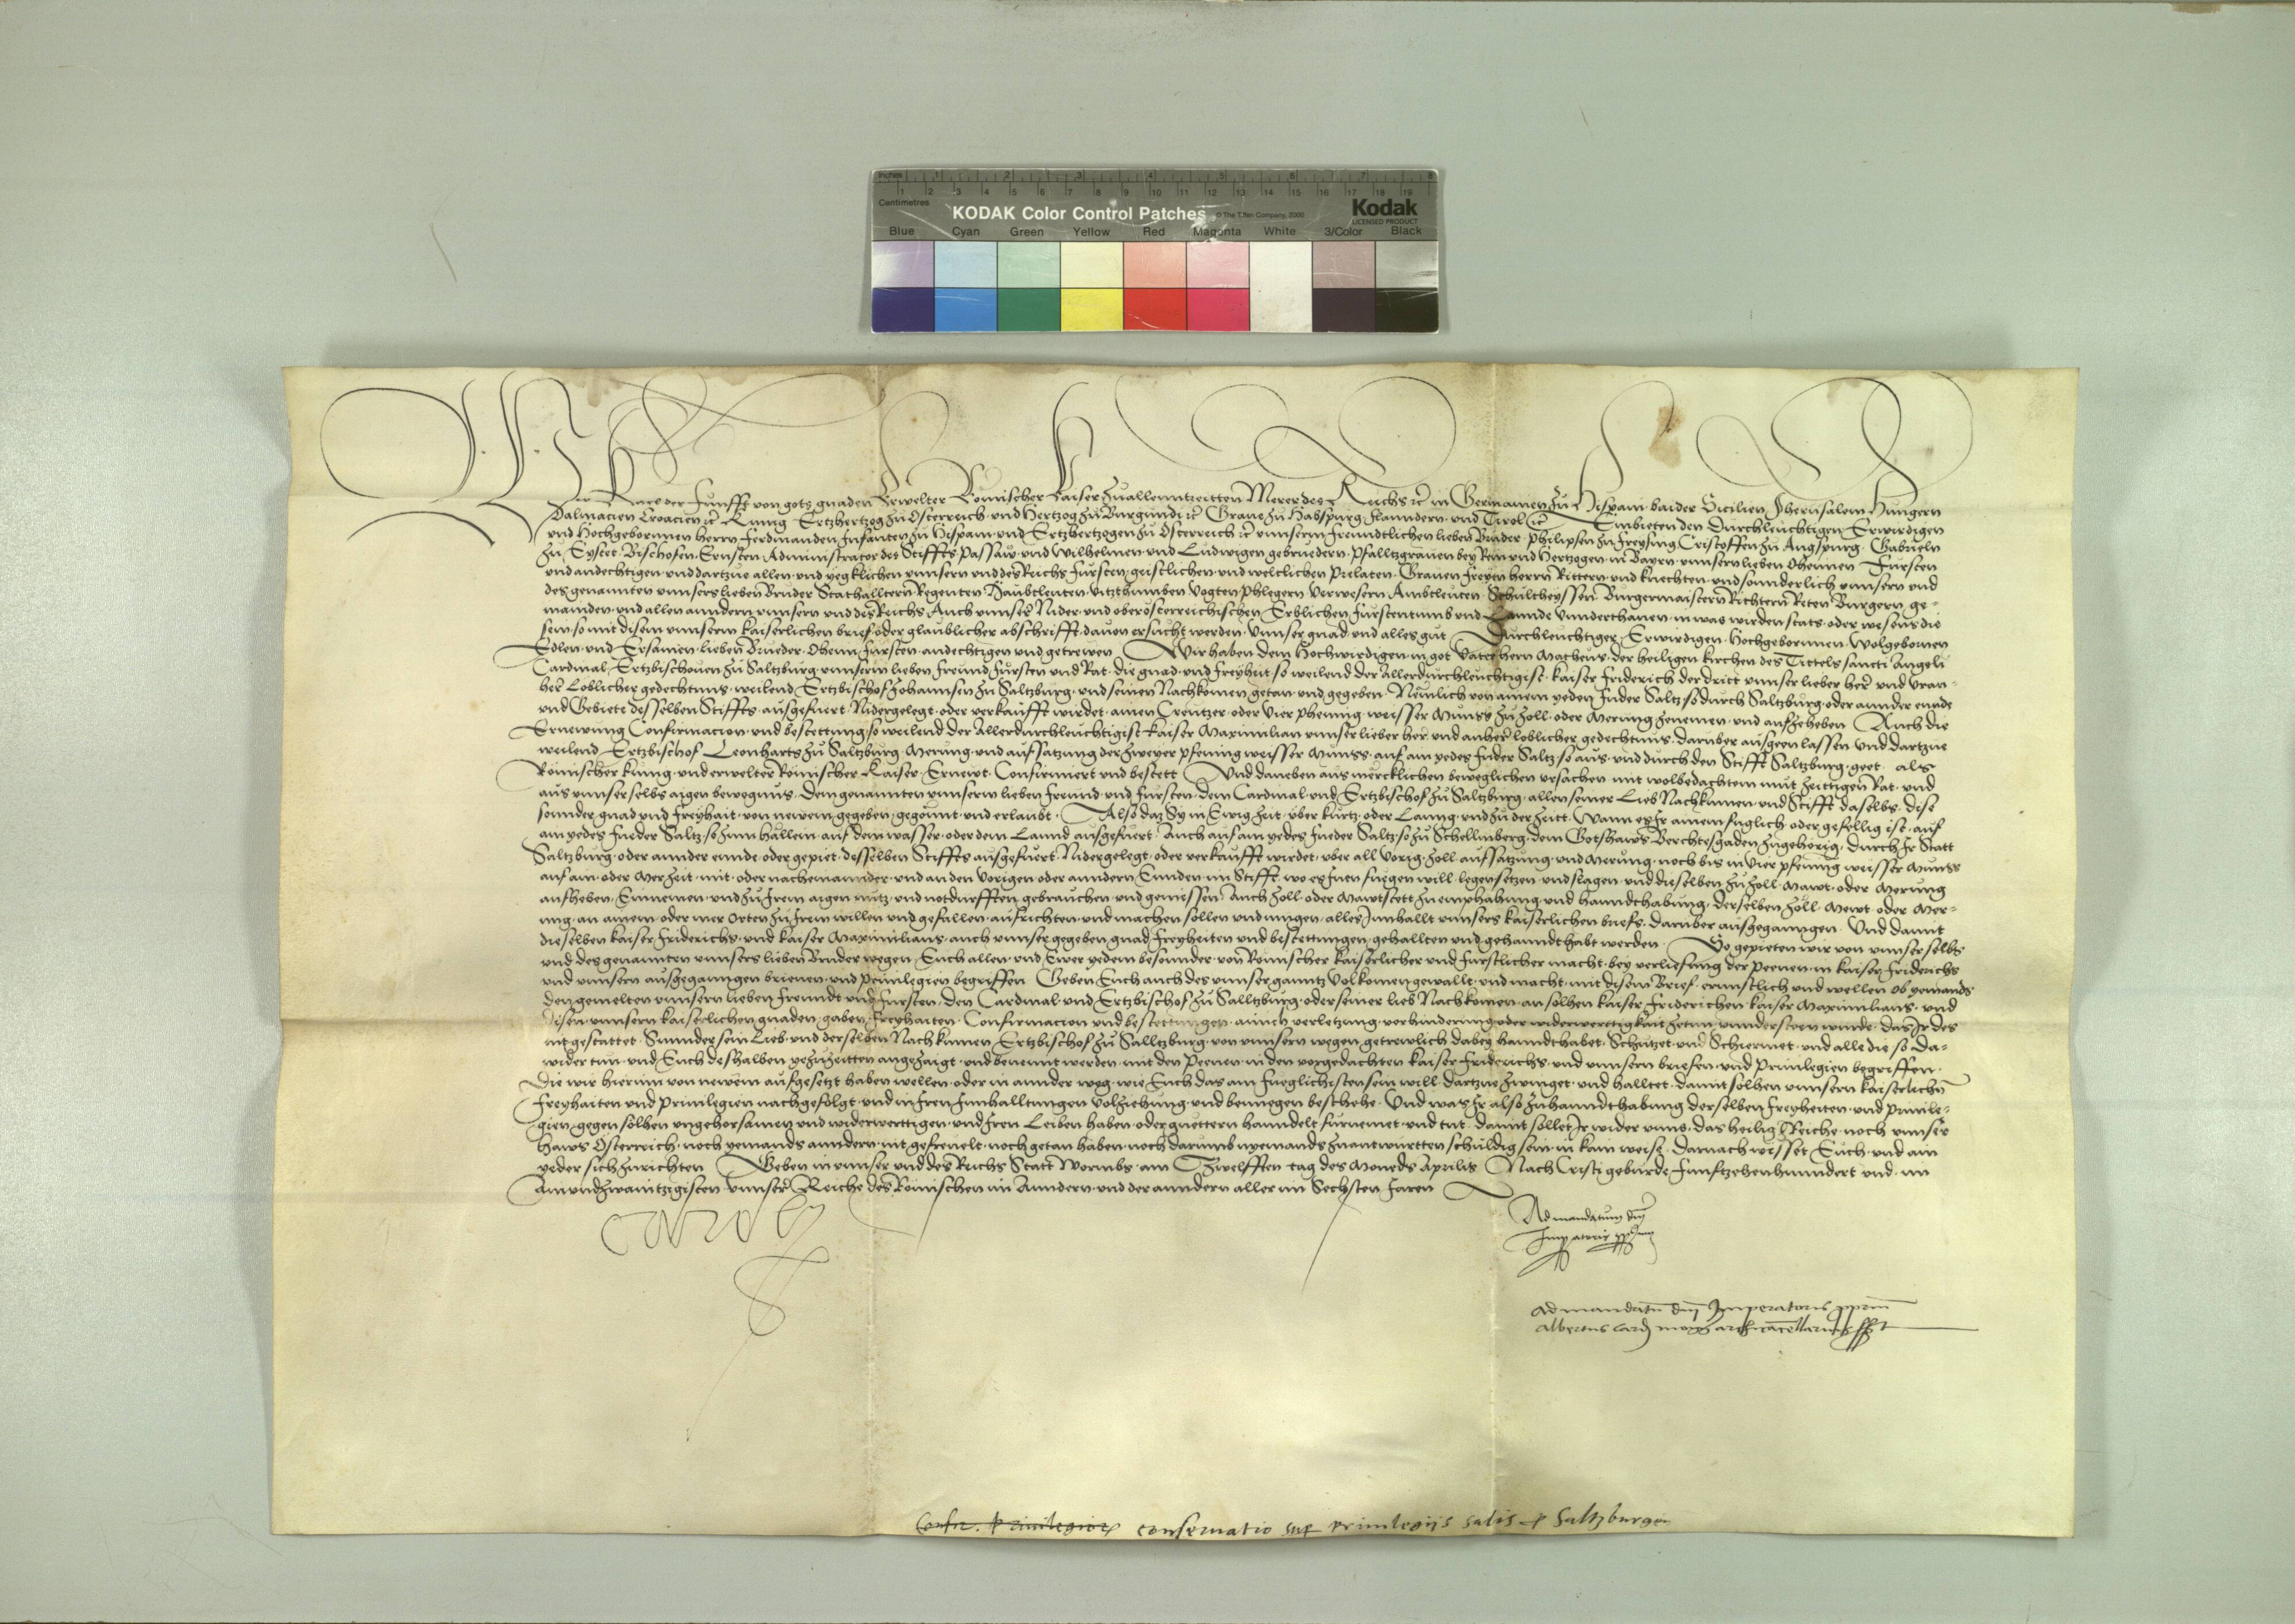 Inches 1 2 3 4 5 6 7 8
Centimetres 1 2 3 4 5 6 7 8 9 10 11 12 13 14 15 16 17 18 19
KODAK Color Control Patches © The Tiffen Company, 2000 Kodak
LICENSED PRODUCT
Blue Cyan Green Yellow Red Magenta White 3/Color Black
Wir Karl der Funfft von gots gnaden Erwelter Römischer Kaiser zuallenntzeitten Merer des Reichs ꝛc in Germanien zu Hispani baider Sicilien Jherusalem Hungern
Dalmacien Croacien ꝛc Kunig Ertzhertzog zu Österreich und Hertzog zu Burgundi ꝛc Graue zu Habspurg Flanndern und Tirol ꝛc Embieten den Durchleuchtigen Erwirdigen
und Hochgebornnen herrn Ferdinanden Infanten zu Hispani und Ertzhertzogen zu Österreich ꝛc unnserm freundtlichen lieben Bruder Philipsen zu Freysing Cristoffen zu Augspurg Gabrieln
zu Eystet Bischofen Ernsten Administrator des Stiffts Passaw und Wilhelmen und Ludwigen gebruedern Pfalltzgrauen bey Rein und Hertzogen in Bayrn unnsern lieben Oheimen Fursten
und andechtigen und dartzue allen und yegklichen unnsern und des Reichs Fursten geistlichen und weltlichen Prelaten Grauen Freyen herrn Rittern und knechten und sonnderlich unnsern und
des genannten unnsers lieben Bruder Stathalltern Regenten Haubtleuten Vitzthumben Vogten Phlegern Verwesern Ambtleuten Schultheyssen Burgermaistern Richtern Reten Burgern ge-
mainden und allen anndern unnsern und des Reichs Auch unnser Nider und oberösterreichischen Erblichen Furstentumb und Lannde Unnderthanen in was wirden stats oder wesens die
sein so mit disem unnserm kaiserlichen brief oder glaublicher abschrifft dauon ersucht werden Unnser gnad und alles gut Durchleuchtigen Erwirdigen Hochgebornnen Wolgebornen
Edlen und Ersamen lieben Brueder Oheim Fursten andechtigen und getrewen Wir haben dem Hochwirdigen in got Vater hern Matheus der heiligen kirchen des Tittels sancti Angeli
Cardinal Ertzbischouen zu Saltzburg unnserm lieben Freund Fursten und Rat die gnad und Freyheit so weilend der Allerdurchleuchtigist kaiser Friderich der dritt unnser lieber her und Uran-
her Loblicher gedechtnus weilend Ertzbischof Johannsen zu Saltzburg und seinen Nachkomen getan und gegeben Nemlich von ainem yeden Fuder Saltz so durch Saltzburg oder annder ennde
und Gebiete desselben Stiffts ausgefuert Nidergelegt oder verkaufft wirdet ainen Creutzer oder Vier phening weisser Munss zu Zoll oder Merung zenemen und aufzeheben Auch die
Ernewung Confirmacion und bestettung so weilend der Allerdurchleuchtigist Kaiser Maximilian unnser lieber her und anher loblicher gedechtnus daruber ausgeen lassen Und dartzue
weilend Ertzbischof Leonharts zu Saltzburg Merung und aufsatzung der zweyer pfening weisser Munss auf ain yedes Fuder Saltz so aus und durch den Stifft Saltzburg geet als
Römischer kunig und erwelter Römischer Kaiser Ernewt Confirmiert und bestett Und daneben aus mercklichen beweglichen ursachen mit wolbedachtem mut zeittigen Rat und
aus unnser selbs aigen bewegnus dem genannten unnserm lieben Freund und Fursten dem Cardinal und Ertzbischof zu Saltzburg allen seiner Lieb Nachkumen und Stifft daselbs dise
sonnder gnad und Freyhait von newem gegeben gegönnt und erlaubt Also daz Sy in Ewig zeit uber kurtz oder Lanng und zu der zeitt Wann es Ir ainem fuglich oder gefellig ist auf
ain yedes Fueder Saltz so zum Hallein auf dem wasser oder dem Lannd ausgefuert Auch auf ain yedes Fueder Saltz so zu Schellnberg dem Gotshaws Berchtesgaden zugehörig durch Ir Statt
Saltzburg oder annder ennde oder gepiet desselben Stiffts ausgefuert Nidergelegt oder verkaufft wirdet uber all Vorig Zoll aufsatzung und Merung noch bis in Vier pfening weisser Munss
auf ain oder Mer zeit mit oder nacheinannder und an den Vorigen oder anndern Ennden im Stifft wo es Inen fuegen will legen setzen und slagen und dieselben zu Zoll Mawt oder Merung
aufheben Einnemen und zu Irem aigen nutz und notdurfften gebrauchen und geniessen Auch Zoll oder Mawtstett zu emphahung und hanndthabung derselben Zoll Mewt oder Mer-
ung an ainem oder mer Orten zu Irem willen und gefallen aufrichten und machen sollen und mugen alles Innhallt unnsers kaiserlichen briefs daruber ausgegangen Und damit
dieselben kaiser Friderichs und kaiser Maximilians auch unnser gegeben gnad Freyheiten und bestettungen gehallten und gehanndthabt werden So gepieten wir von unnser selbs
und des genannten unnsers lieben Bruder wegen Euch allen und Ewer yedem besonnder von Römischer kaiserlicher und furstlicher macht bey verliesung der Peenen in kaiser Friderichs
und unnsern ausgegangen brieuen und Priuilegien begriffen Geben Euch auch des unnser ganntz Volkomen gewallt und macht mit disem Brief ernnstlich und wellen ob yemands
den gemelten unnsern lieben Freundt und Fursten den Cardinal und Ertzbischof zu Salltzburg oder seiner lieb Nachkomen an solhen kaiser Friderichen kaiser Maximilians und
disen unnsern kaiserlichen gnaden gaben Freyhaiten Confirmacion und bestettungen ainich verletzung verhinderung oder widerwerttigkait zetun unndersteen wurde das Ir des
nit gestattet Sunnder sein Lieb und derselben Nachkumen Ertzbischof zu Salltzburg von unnsern wegen getrewlich dabey hanndthabet Schutzet und Schiermet und alle die so da-
wider tun und Euch deshalben yezuzeitten angezaigt und benennt werden mit den Peenen in den vorgedachten kaiser Friderichs und unnsern briefen und Priuilegien begriffen
Die wir hierinn von newem aufgesetzt haben wellen oder in annder weg wie Euch das am fueglichisten sein will dartzue zwinget und halltet damit solhen unnsern kaiserlichn
Freyhaiten und Priuilegien nachgefolgt und in Iren Innhalltungen Volziehung und benuegen beschehe Und was Ir also zu hanndthabung derselben Freyheiten und Priuile-
gien gegen solhen ungehorsamen und widerwerttigen und Iren Leiben haben oder guettern hanndelt furnemet und tut damit sollet Ir wider unns das heilig Reiche noch unnser
haws Österreich noch yemands anndern nit gefreuelt noch getan haben noch darumb nyemands zu antwurtten schuldig sein in kain weise Darnach wisset Euch und ain
yeder sich zurichten Geben in unnser und des Reichs Statt Wormbs am Zwelfften tag des Moneds Aprilis Nach Cristi geburde Funfftzehenhundert und im
Ainundzwaintzigisten Unnser Reiche des Römischen im Anndern und der anndern aller im Sechsten Jaren
Carolus
Ad mandatum dni
Imperatoris pprium
Ad mandatu dni Imperatoris pprium
Albertus Card mogu archicancellarius sst
Confir. Priuilegior conseruatio sup priuilegijs salis Saltzburgen